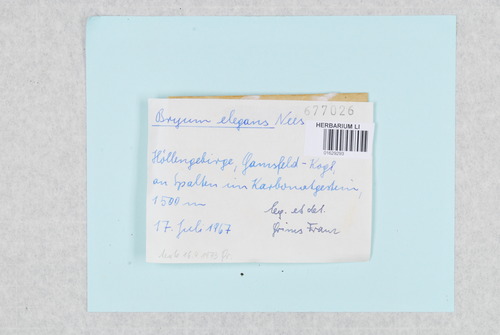 677026
Bryum elegans Nees
HERBARIUM LI
Höllengebirge, Gamsfeld-Kogl,
an Spalten im Karbonatgestein,
1500 m
leg. et det.
17. Juli 1967
Grims Franz